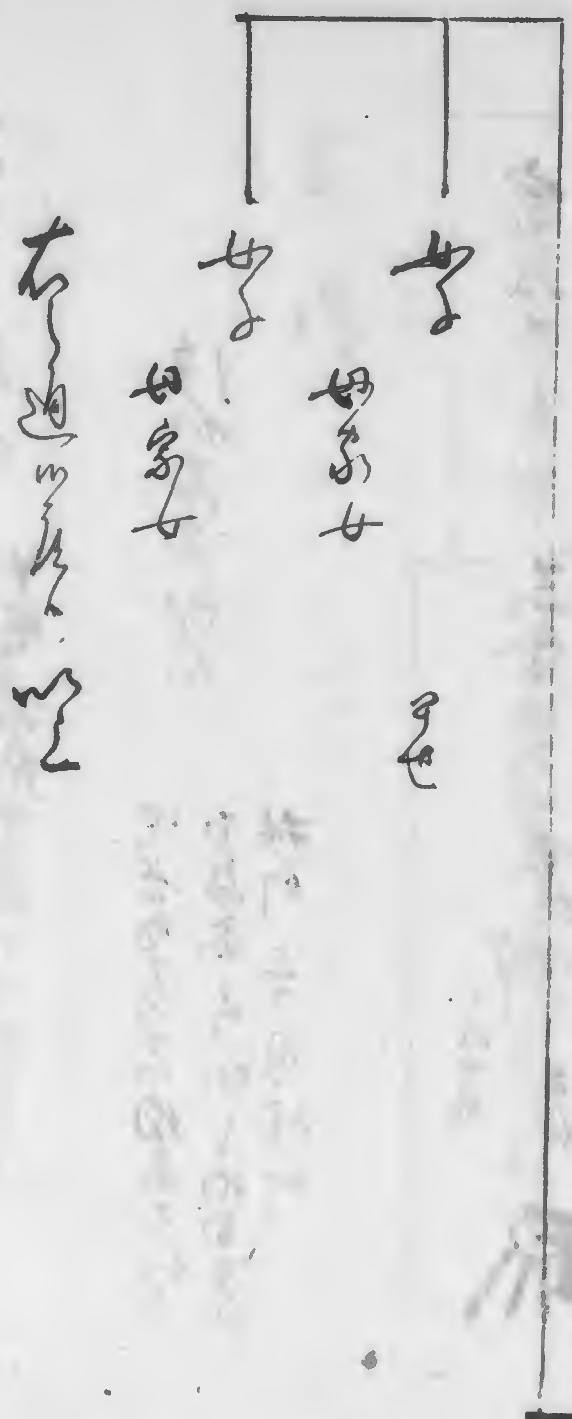 女子
早世
母家女
女子
母家女
右之通御座候 以上